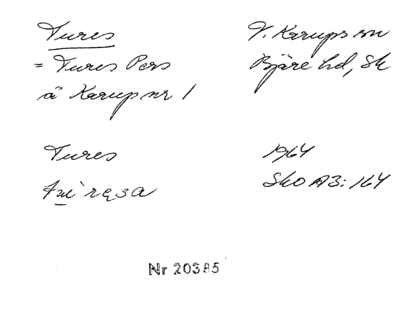 Tures
= Tures Pers
å Karup nr 1
V. Karups sn
Bjäre hd, Sk
Tures
1964
Sko A3: 164
Nr 20385